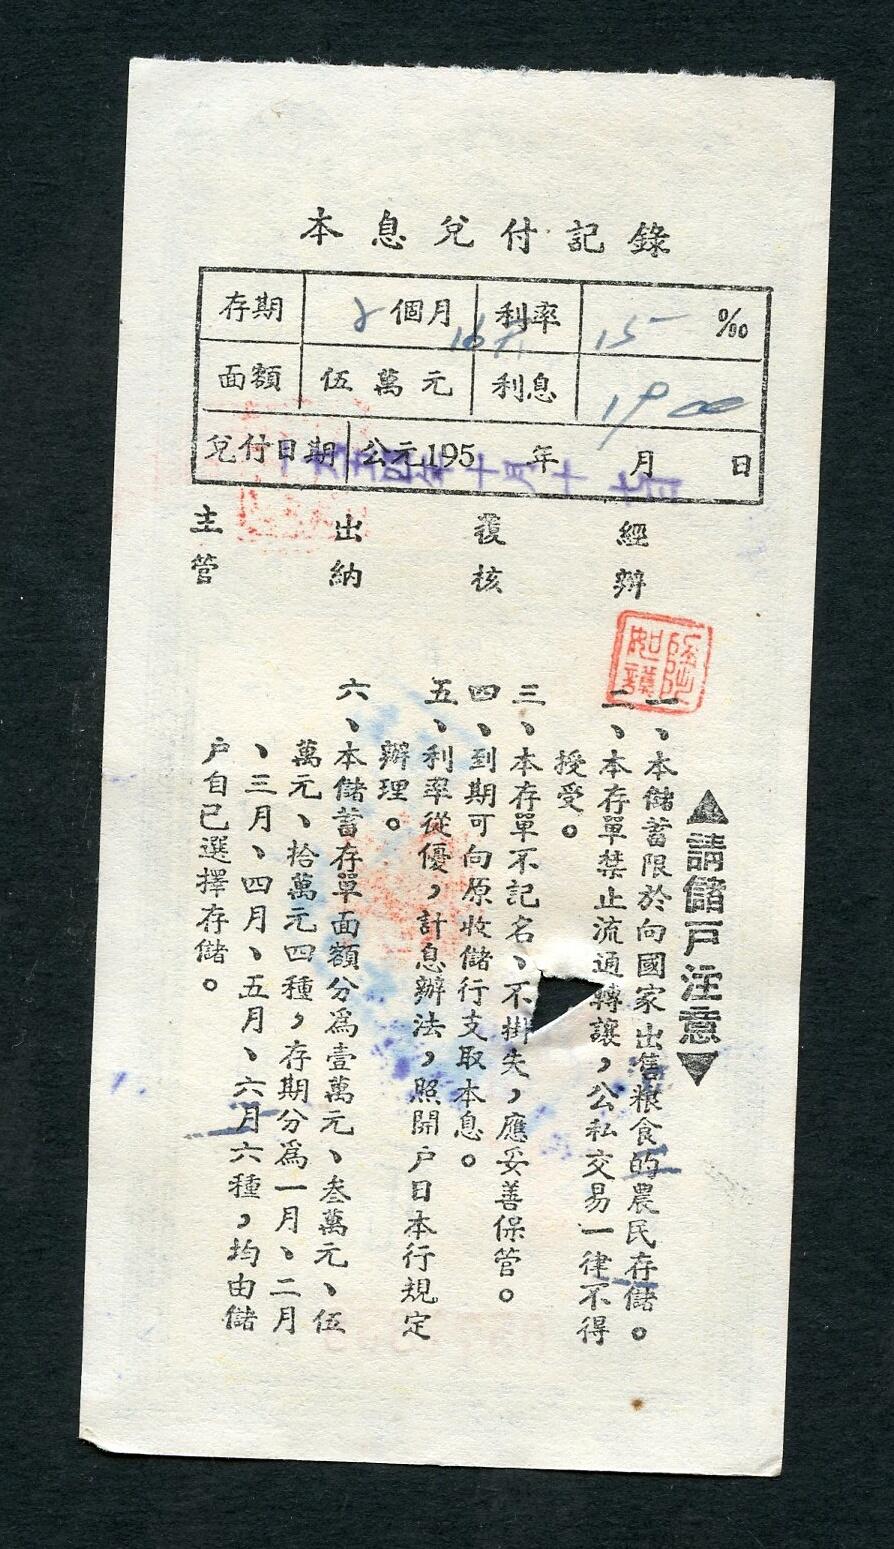 本息兌付記錄
存期 2個月 16天 利率 15 ‰
面額 伍萬元 利息 1900
兌付日期 公元195 年 月 日
一九五四年十月十七日
主管 出納 覆核 經辦
▲請儲戶注意▼
一、本儲蓄限於向國家出售粮食的農民存儲。
二、本存單禁止流通轉讓，公私交易一律不得
授受。
三、本存單不記名、不掛失，應妥善保管。
四、到期可向原收儲行支取本息。
五、利率從優，計息辦法，照開戶日本行規定
辦理。
六、本儲蓄存單面額分爲壹萬元、叁萬元、伍
萬元、拾萬元四種，存期分爲一月、二月
、三月、四月、五月、六月六種，均由儲
户自己選擇存儲。